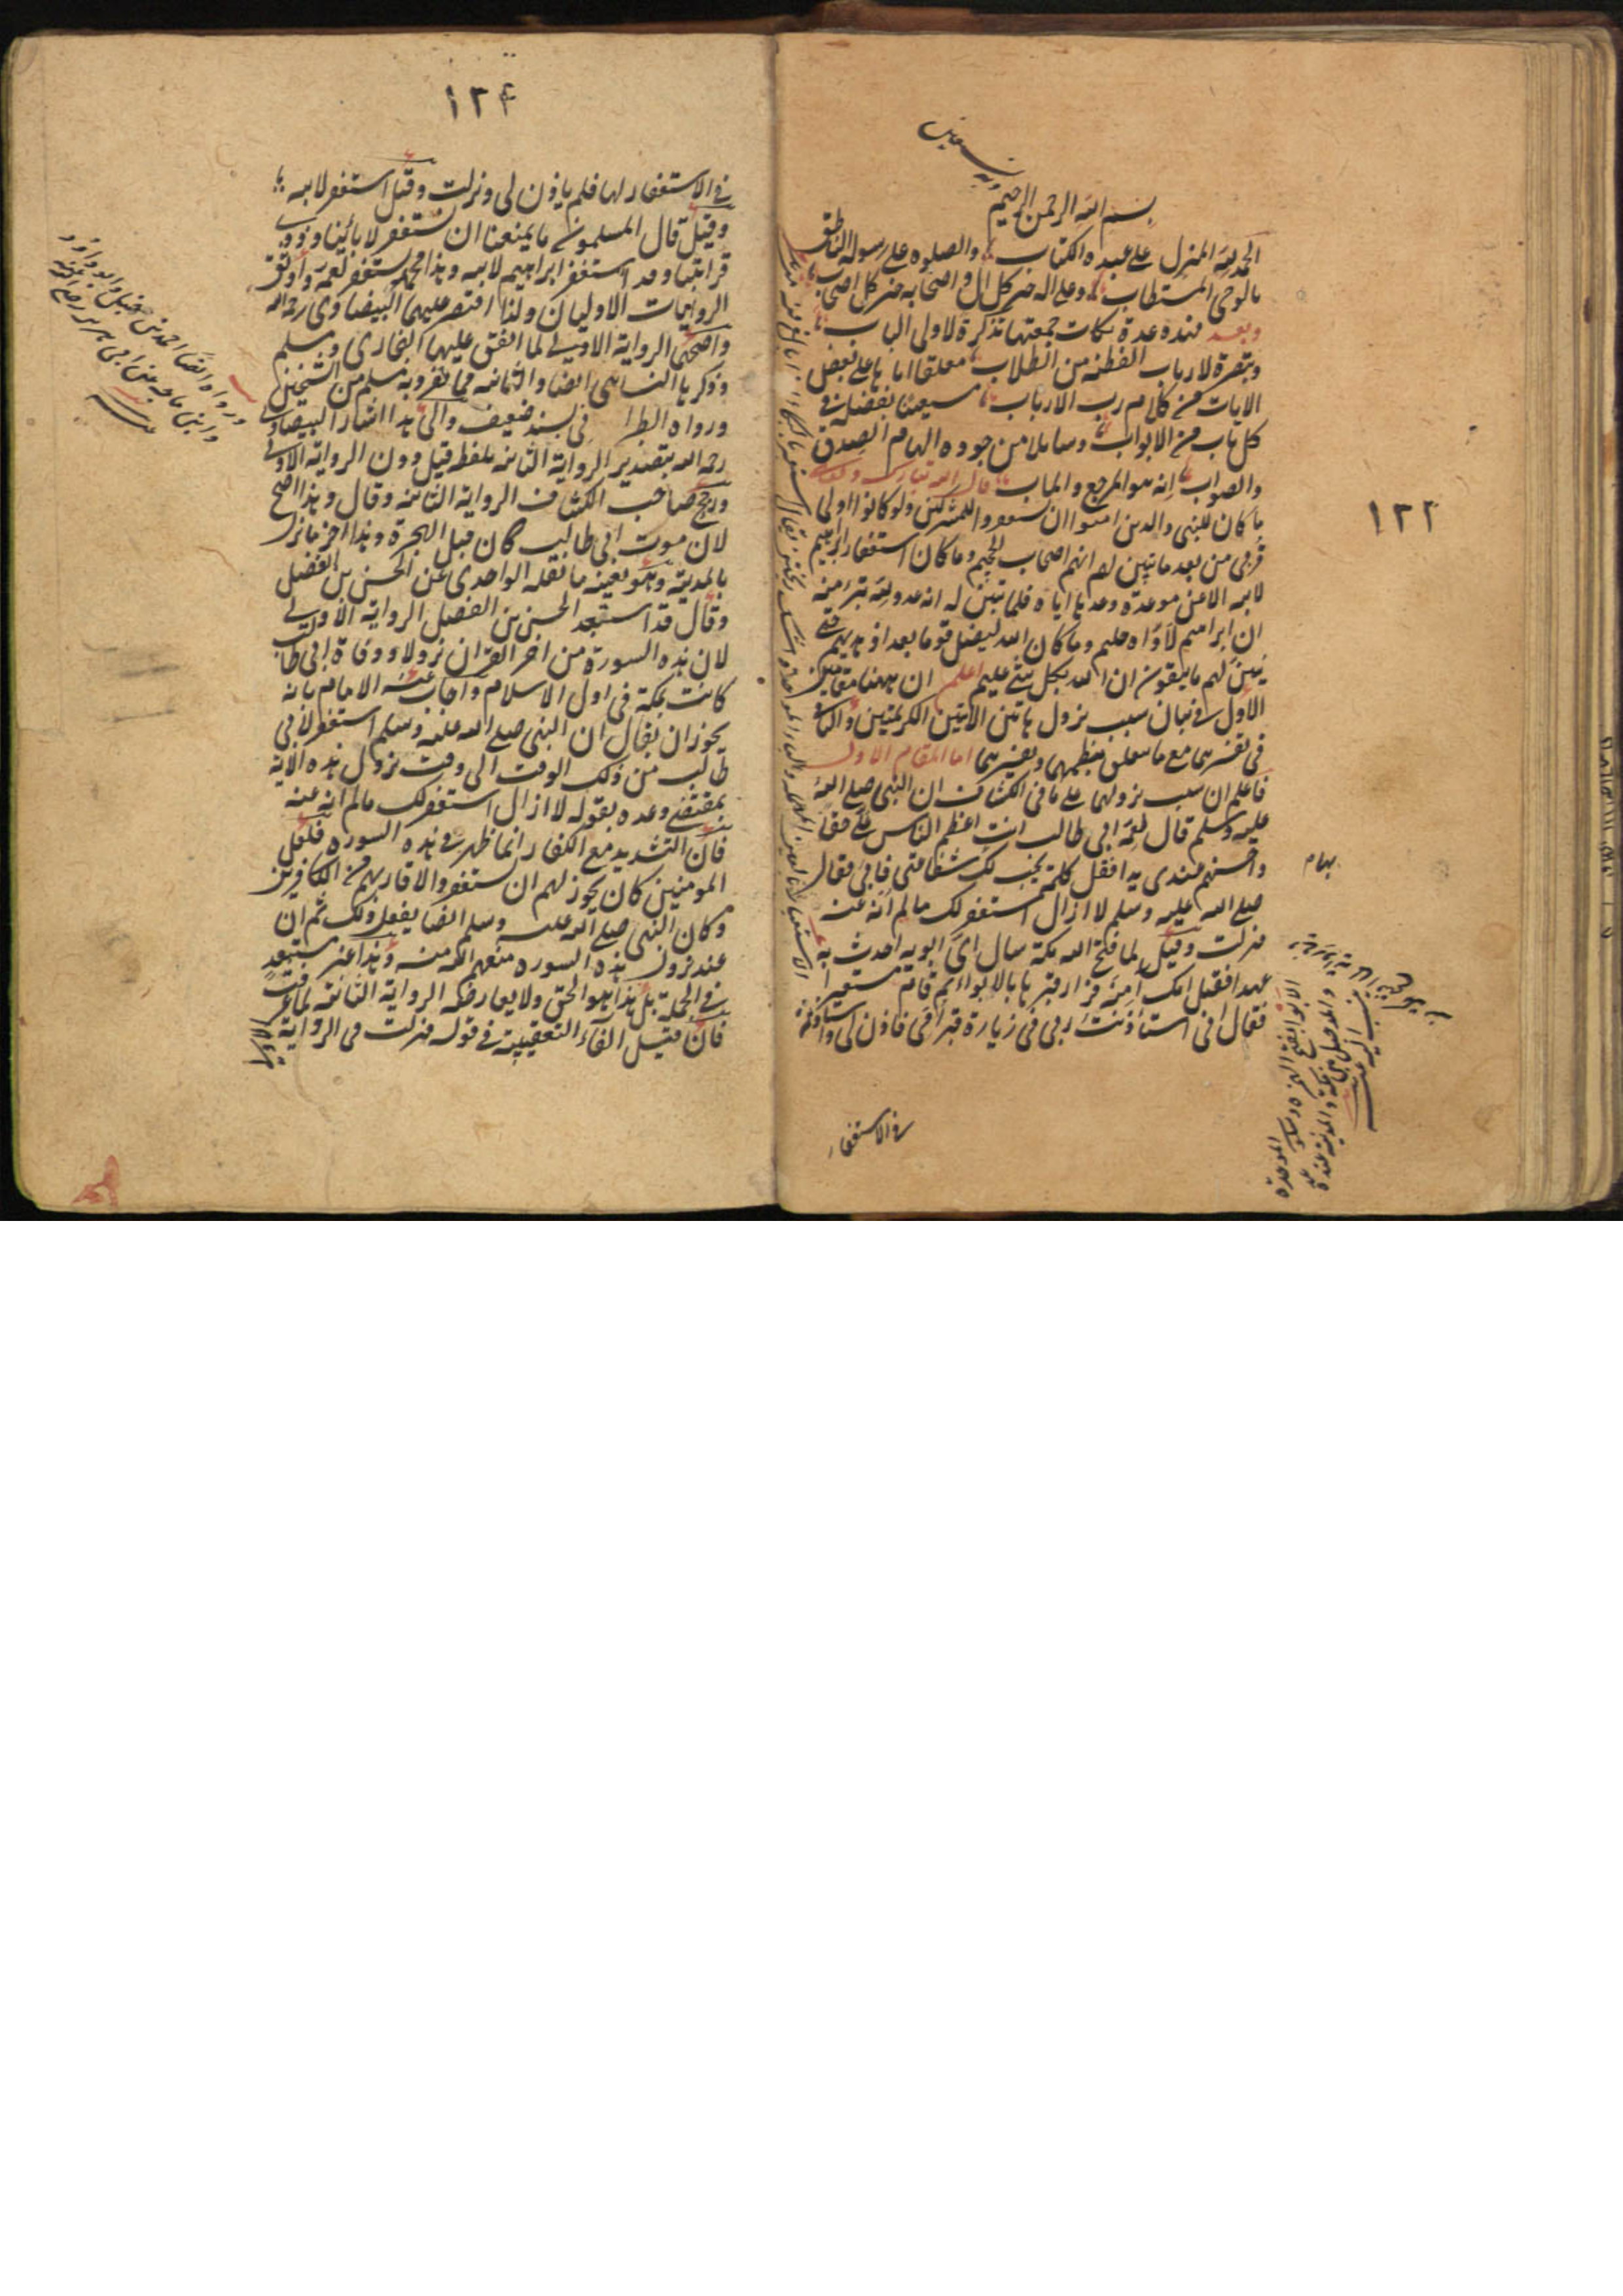 ١٢٢
بسم الله الرحمن الرحيم
الحمد لله المنزل على عبده الكتاب والصلوه على رسوله الناطق
بالوحى المستطاب وعلى اله خير كل ال واصحابه خير كل اصحاب
وبعد فهذه عدة نكات جمعتها تذكرة لاولى الباب
وتبصرة لارباب الفطنه من الطلاب معلقا اياها على بعض
الايات من كلام رب الارباب مستعينا بفضله فى
كل باب من الابواب وسايلا من جوده الهام الصدق
والصواب انه هو المرجع والماب قال الله تبارك وتعالى
ما كان للنبى والذين امنوا ان يستغفروا للمشركين ولو كانوا اولى
قربى من بعد ما تبين لهم انهم اصحاب الجحيم وما كان استغفار ابراهيم
لابيه الا عن موعدة وعدها اياه فلما تبين له انه عدو لله تبرء منه
ان ابراهيم لاواه حليم وما كان الله ليضل قوما بعد اذ هديهم حتى
يبين لهم ما يتقون ان الله بكل شئ عليم اعلم ان ههنا مقامين
الاول فى بيان سبب نزول هاتين الايتين الكريمتين والثانى
فى تفسيرهما مع ما يتعلق بنظمهما وتفسيرهما اما المقام الاول
فاعلم ان سبب نزولهما على ما فى الكشاف ان النبى صلى الله
عليه وسلم قال لعمه ابى طالب انت اعظم الناس على حقا
واحسنهم عندى يدا فقل كلمة تجب لك شفاعتى فابى فقال
صلى الله عليه وسلم لا ازال استغفر لك ما لم انه عنه
فنزلت وقيل لما فتح الله مكة سال اى ابويه احدث به
عهدا فقيل امك آمنة فزار قبرها بالابواء ثم قام مستعبرا
فقال انى استأذنت ربى فى زيارة قبر امى فاذن لى واستاذنته
فى الاستغفار
١٢٤
فى الاستغفار لها فلم ياذن لى ونزلت وقيل استغفر لابيه
وقيل قال المسلمون ما يمنعنا ان نستغفر لابائينا وذوى
قراباتنا وقد استغفر ابراهيم لابيه وهذا محمد يستغفر لعمه واوثق
الروايات الاوليان ولذا اقتصر عليهما البيضاوى رحمه الله
واصحهما الرواية الاولى لما اتفق عليها البخارى ومسلم
وذكرها النسائى ايضا والثانيه مما تفرد به مسلم من الشيخين
ورواه الطبرانى بسند ضعيف والى هذا اشار البيضاوى
رحمه الله بتصدير الرواية الثانيه بلفظ قيل دون الرواية الاولى
ورجح صاحب الكشاف الرواية الثانيه وقال وهذا اصح
لان موت ابى طالب كان قبل الهجرة وهذا اخر ما نزل
بالمدينة وهو بعينه ما نقله الواحدى عن الحسن بن الفضل
وقال قد استبعد الحسن بن الفضل الرواية الاولى
لان هذه السورة من اخر القران نزولا ووفاة ابى طالب
كانت بمكة فى اول الاسلام واجاب عنه الامام بانه
يجوز ان يقال ان النبى صلى الله عليه وسلم استغفر لابى
طالب من ذلك الوقت الى وقت نزول هذه الاية
بمقتضى وعده بقوله لا ازال استغفر لك ما لم انه عنه
فان التشديد مع الكفار انما ظهر فى هذه السوره فلعل
المومنين كان يجوز لهم ان يستغفروا لاقاربهم من الكافرين
وكان النبى صلى الله عليه وسلم ايضا يفعل ذلك ثم ان
عند نزول هذه السوره منعهم الله منه وهذا غير مستبعد
فى الجملة بل هذا هو الحق ولا يعارضه الرواية الثانيه لما عرفت
فان قيل الفاء التعقيبية فى قوله فنزلت فى الرواية الاولى
ورواه ايضا احمد بن حنبل وابو داود
وابن ماجه عن ابى هريره رضى الله عنه